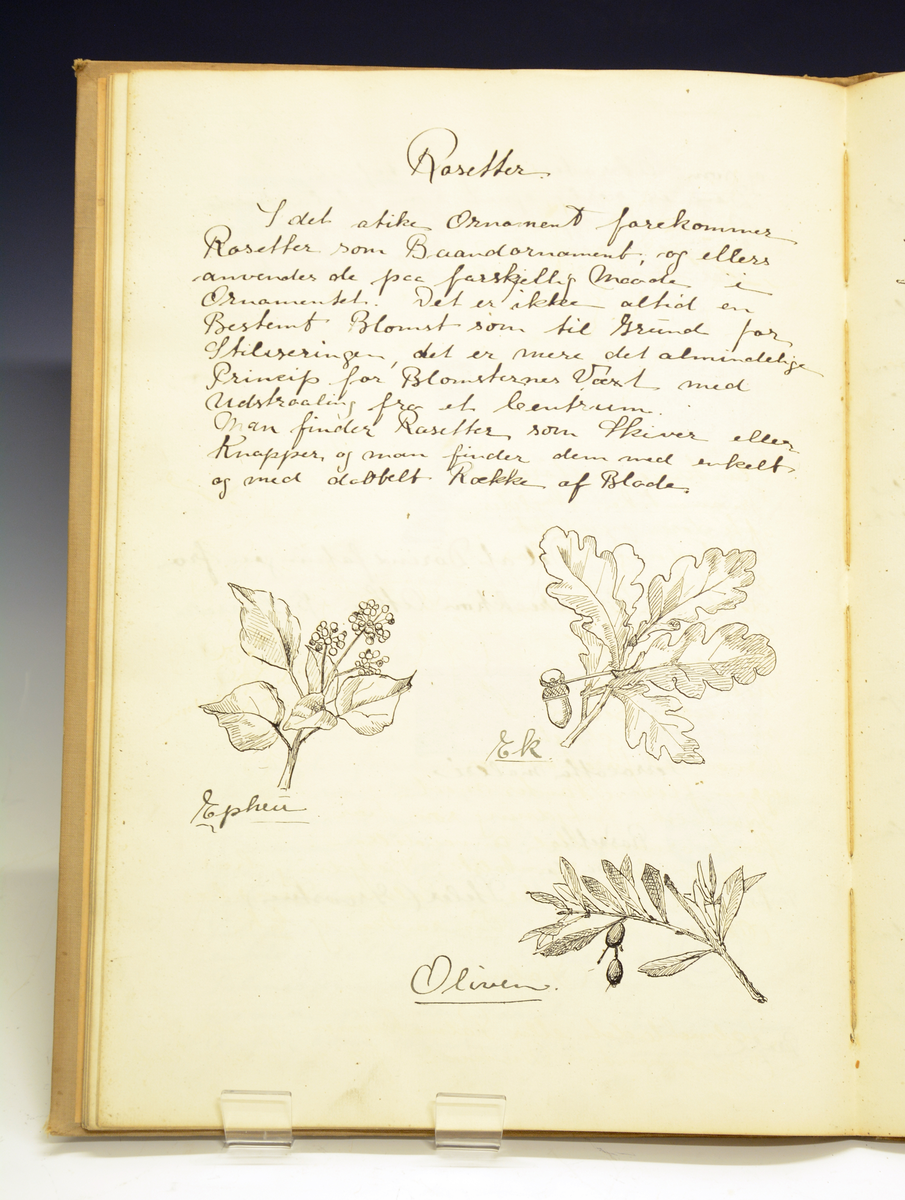 Rosetter.
I det atike Ornament forekommer
Rosetter som Baandornament, og ellers
anvendes de paa forskjellig Maade i
Ornamentet. Det er ikke altid en
Bestemt Blomst som til Grund for
Stiliseringen, det er mere det almindelige
Princip for Blomsternes Væxt med
Udstraaling fra et Centrum.
Man finder Rosetter som Skiver eller
Knapper, og man finder dem med enkelt
og med dobbelt Række af Blade.
Ek
Epheu
Oliven.